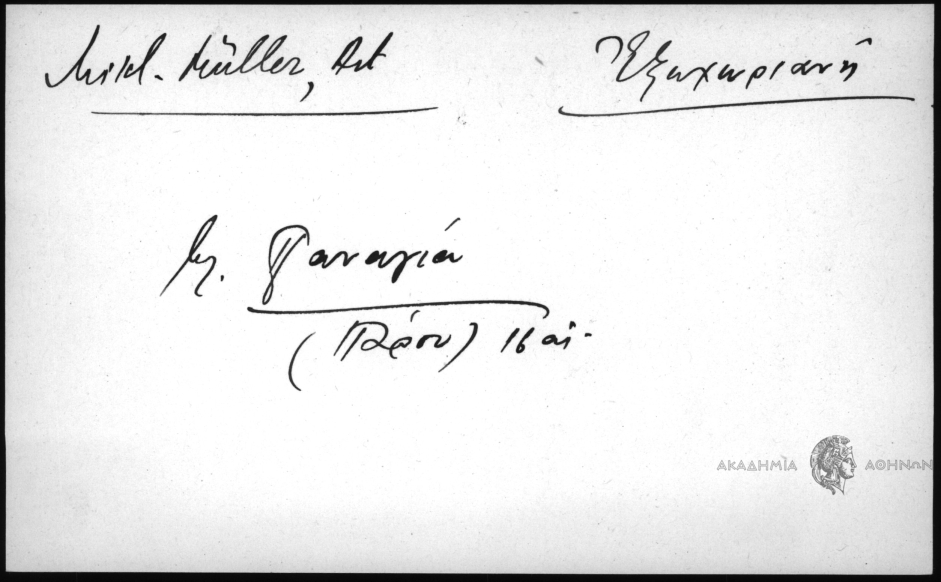 Mikl.-Müller, Act
Ἐξωχωριανή
βλ. Παναγιά
(Πάρου) 16 αἰ.
ΑΚΑΔΗΜΙΑ ΑΘΗΝΩΝ